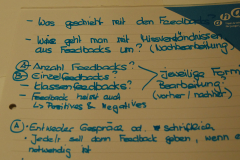 - Was geschieht mit den Feedbacks
- Wie geht man mit Missverständnissen
aus Feedbacks um? (Nachbearbeitung)
A Anzahl Feedbacks?
B Einzelfeedbacks? > jeweilige Form
- Klassenfeedbacks? Bearbeitung
- Feedback heisst auch (vorher / nachher)
↳ Positives & Negatives
A • Entweder Gespräch od. schriftlich
• Jede/r soll dann Feedback geben, wenn es
notwendig ist